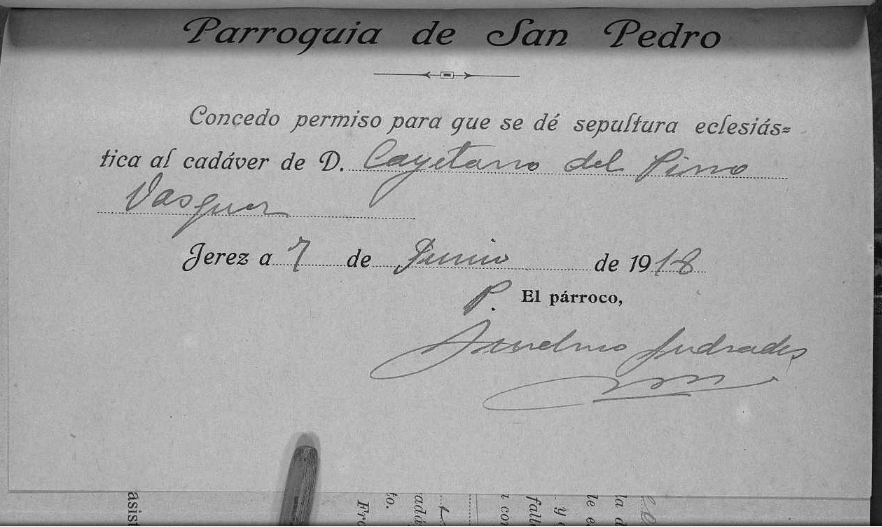 Parroquia de San Pedro
Concedo permiso para que se dé sepultura eclesiás=
tica al cadáver de D. Cayetano del Pino
Vasquez
Jerez a 7 de Junio de 1918
P. El párroco,
Anselmo Andrades
asis
Fra
to.
adá
fall
y
la d